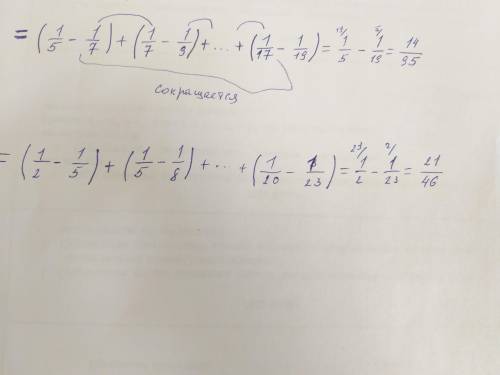 = (1/5 - 1/7) + (1/7 - 1/9) + ... + (1/17 - 1/19) = ¹⁹⁄1/5 - ⁵⁄1/19 = 14/95
сокращается
= (1/2 - 1/5) + (1/5 - 1/8) + ... + (1/20 - 1/23) = ²³⁄1/2 - ²⁄1/23 = 21/46